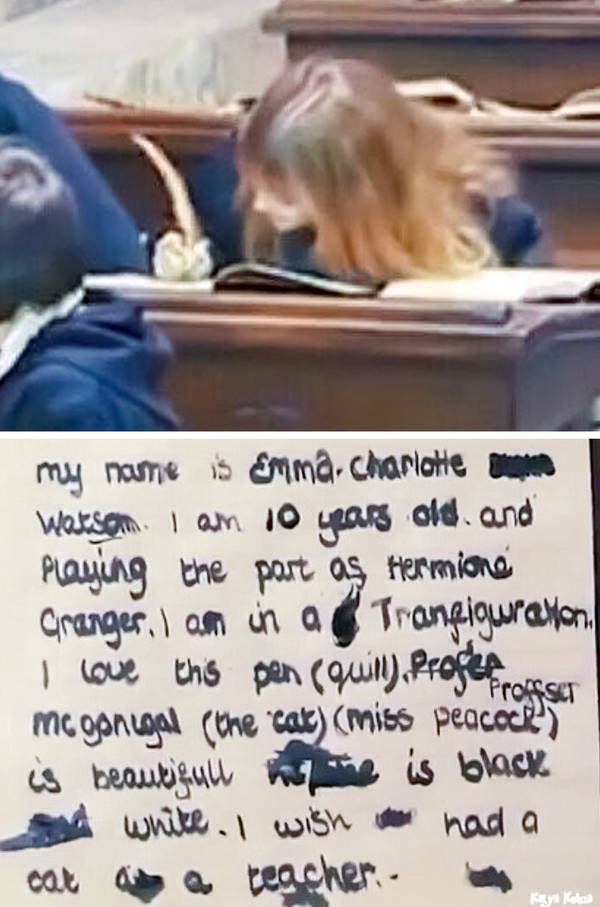 my name is Emma. Charlotte
Watsom. I am 10 years old. and
Playing the part as Hermione
Granger. I am in a Tranfiguration.
I love this pen (quill). Profer
Proffser
mcgonigal (the cat) (miss peacock)
is beautifull is black
white. I wish had a
cat a teacher.-